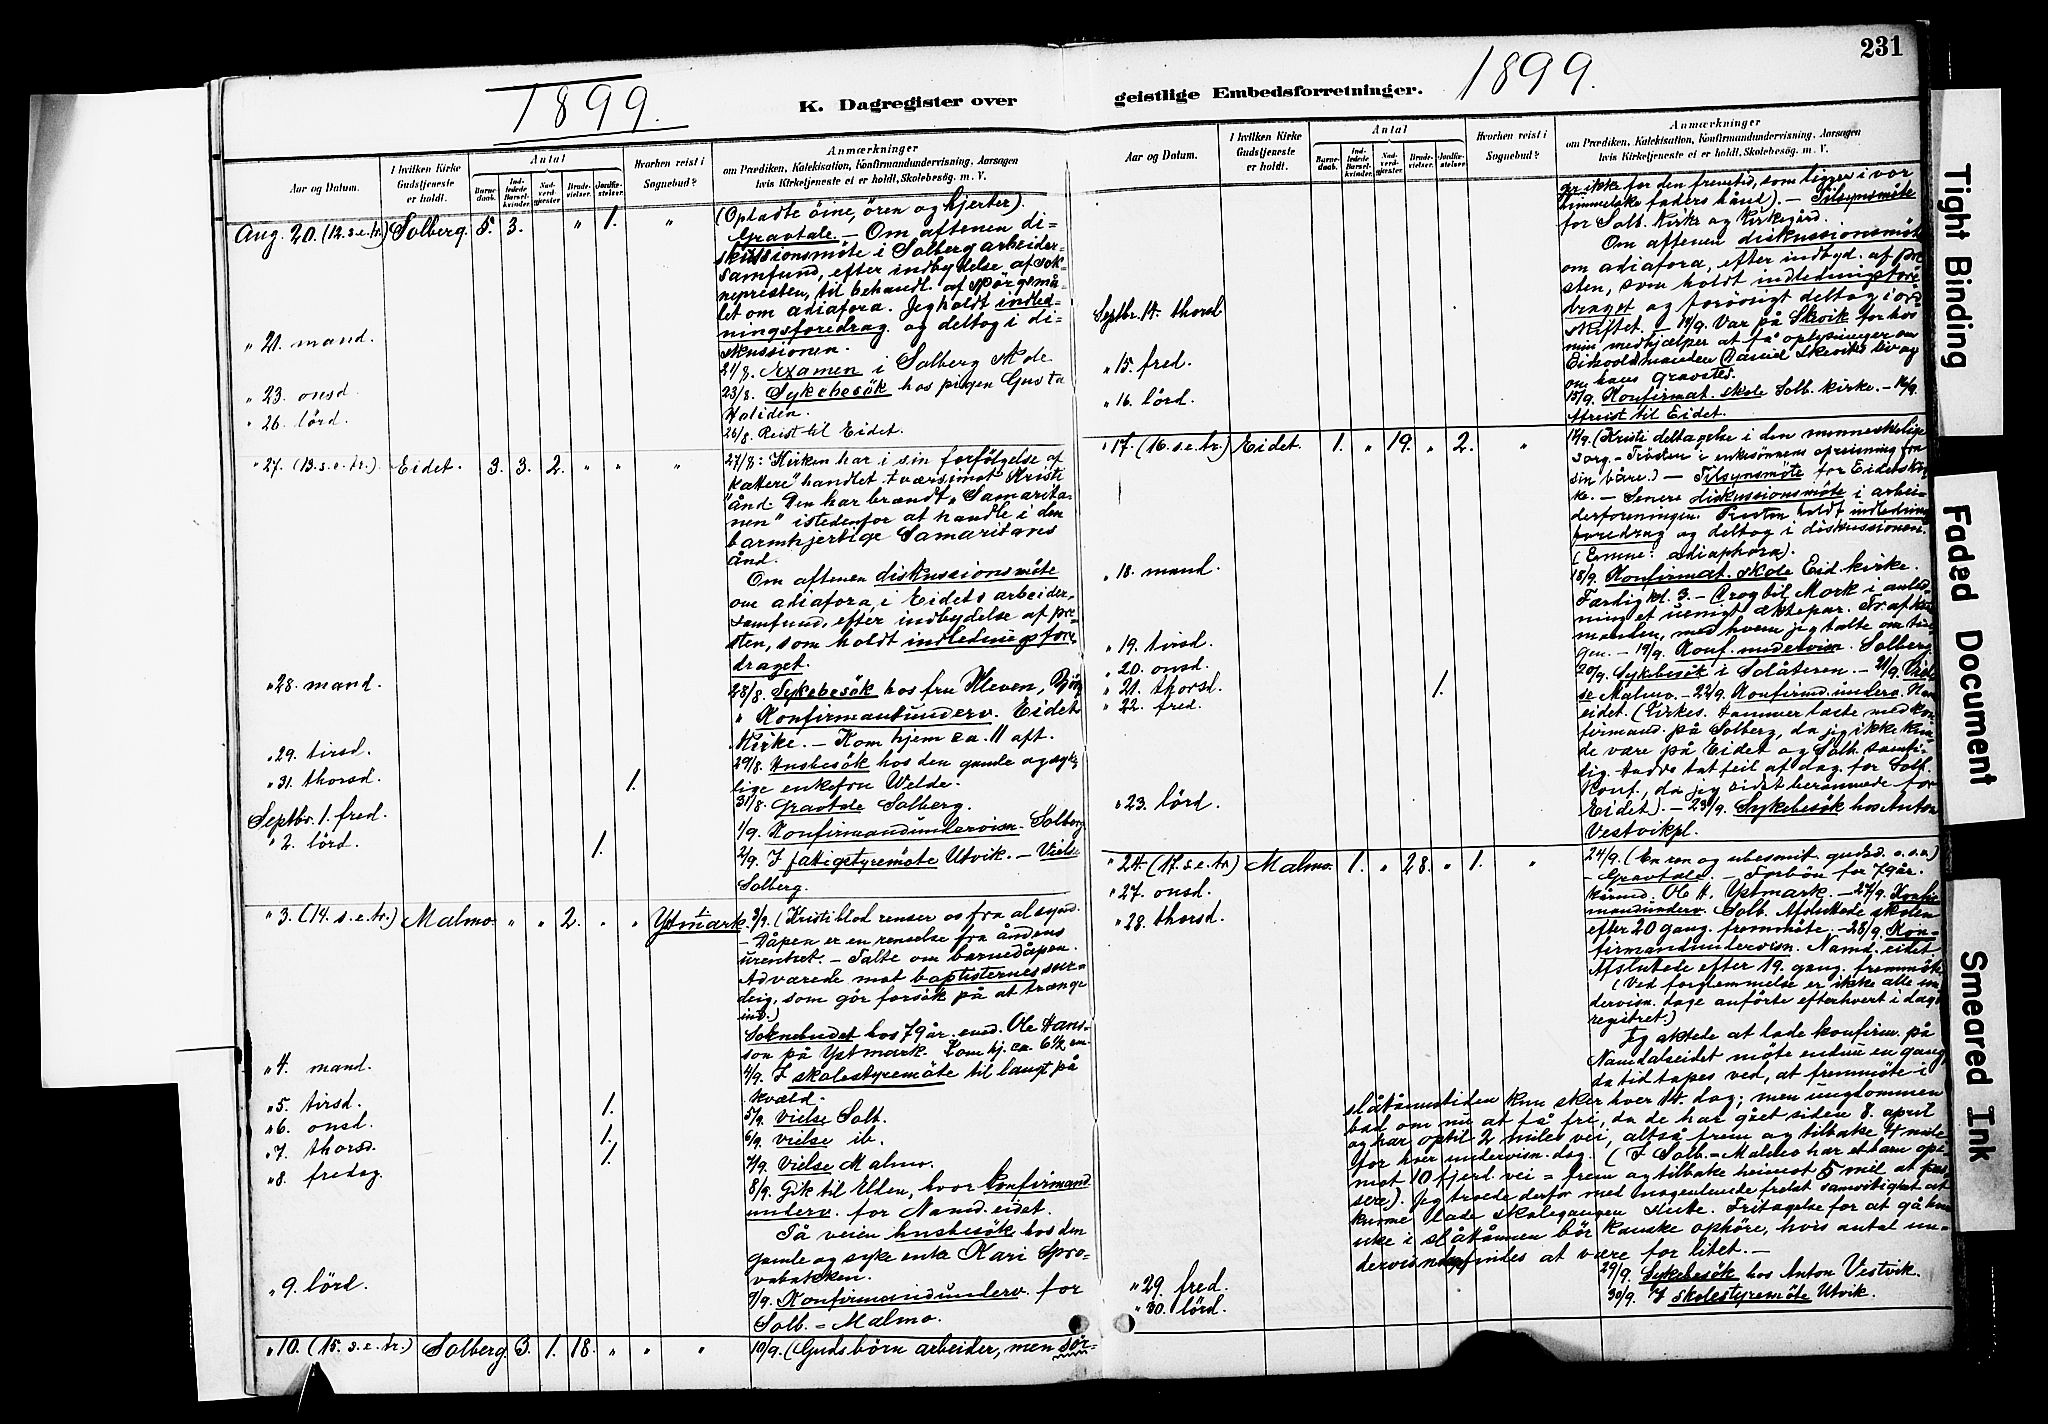 231
1899.
K. Dagregister over
geistlige Embedsforretninger.
1899.
Aar og Datum.
I hvilken Kirke Gudstjeneste er holdt.
Antal
Barnedaab.
Indledede Barselkvinder.
Nadverdgjester
Brudevielser.
Jordfæstelser.
Hvorhen reist i Sognebud?
Anmærkninger
om Prædiken, Katekisation, Konfirmandundervisning, Aarsagen
hvis Kirketjeneste ei er holdt, Skolebesøg. m. V.
Aug. 20. (12. s. e. tr.) Solberg. 5. 3. " 1. "
(Opladte öine, ören og hjerter).
Gravtale. – Om aftenen di-
skussionsmöte i Solberg arbeider-
samfund, efter indbydelse af sok-
nepresten, til behandl. af spörgsmå-
let om adiafora. Jeg holdt indled-
ningsforedrag og deltog i di-
skussionen.
" 21. mand.
21/8. Examen i Solberg skole
" 23. onsd.
23/8. Sykebesök hos pigen Gusta
Holiden.
" 26. lörd.
26/8. Reist til Eidet.
" 27. (13. s. e. tr.) Eidet. 3. 3. 2. " " "
27/8: Kirken har i sin forfölgelse af
"kattere" handlet tværsimot Kristi
ånd. Den har brændt "Samarita-
nen" istedenfor at handle i den
barmhjertige Samaritans
ånd.
Om aftenen diskussionsmöte
om adiafora, i Eidets arbeider-
samfund, efter indbydelse af pre-
sten, som holdt indledningsfore-
draget.
" 28. mand.
28/8. Sykebesök hos fru Kleven,
" Konfirmantunderv. Eidet
Kirke. – Kom hjem ca. 11 aft.
" 29. tirsd.
29/8. Husbesök hos den gamle og syke-
lige enkefru Welde.
" 31. thorsd. 1.
31/8. Gravtale Solberg.
Septbr. 1. fred.
1/9. Konfirmandundervisn. Solberg
" 2. lörd. 1.
2/9. I fattigstyremöte Utvik. – Vielse
Solberg.
" 3. (14. s. e. tr.) Malmo. " " 2. " " Ystmark.
3/9. (Kristi blod renser os fra al synd.
– Dåpen er en renselse fra åndens
urenhet. – Talte om barnedåpen.
Advarede mot baptisternes sur-
deig, som gör forsök på at trænge
ind.)
Soknebudet hos 79år. end. Ole Hans-
son på Ystmark. Kom hj. ca. 6½ em.
" 4. mand.
4/9. I skolestyremöte til langt på
kvæld.
" 5. tirsd. 1.
5/9. Vielse Solb.
" 6. onsd. 1.
6/9. Vielse ib.
" 7. thorsd. 1.
7/9. Vielse Malmo.
" 8. fredag.
8/9. Gik til Elden, hvor konfirmand
underv. for Namd. eidet.
På veien husbesök hos den
gamle og syke enke Kari Spro-
vabakken.
" 9. lörd.
9/9. Konfirmandunderv. for
Solb. – Malmo.
" 10. (15. s. e. tr.) Solberg 3. 1. 18. " " "
10/9. (Guds börn arbeider, men sör-
Aar og Datum.
I hvilken Kirke Gudstjeneste er holdt.
Antal
Barnedaab.
Indledede Barselkvinder.
Nadverdgjester
Brudevielser.
Jordfæstelser.
Hvorhen reist i Sognebud?
Anmærkninger
om Prædiken, Katekisation, Konfirmandundervisning, Aarsagen
hvis Kirketjeneste ei er holdt, Skolebesög. m. V.
ger ikke for den fremtid, som ligger i vor
himmelske faders hånd). – Tilsynsmöte
for Solb. kirke og kirkegård.
Om aftenen diskussionsmöte
om adiafora, efter indbyd. af pre-
sten, som holdt indledningsfore-
draget og forövrigt deltog i ord-
skiftet. – 14/9. Var på Skevik for hos
min medhjælper at få oplysninger om
Eidsvoldsmanden Daniel Skeviks liv og
om hans gravsted.
Septbr. 14. thorsd
" 15. fred.
15/9. Konfirmat. skole Solb. kirke. – 16/9.
" 16. lörd.
Afreist til Eidet.
" 17. (16. s. e. tr.) Eidet. 1. " 19. " 2. "
17/9. (Kristi deltagelse i den menneskelige
sorg. – Tröden i enkesönnens opreisning fra
sin båre.) – Tilsynsmöte for Eidets kir-
ke. – Senere diskussionsmöte i arbei-
derforeningen. Presten holdt indlednings
foredrag og deltog i diskussionen.
(Emne: adiaphora).
" 18. mand.
18/9. Konfirmat. skole Eid. kirke.
Færdig kl. 3. – Drog til Mork i anled-
ning et uenigt ægtepar. Traf kun
manden, med hvem jeg talte om tin-
gen. – 19/9. Konf. undervisn. Solberg
" 19. tirsd.
" 20. onsd.
20/9. Sykebesök i Solåteren. – 21/9. Viel-
" 21. thorsd. 1.
se Malmo. – 22/9. Konfirmd. underv. Nam-
" 22. fred.
eidet. (Kirkes. Hammer læste med kon-
firmand. på Solberg, da jeg ikke kun-
de være på Eidet og Solb. samti-
dig. Hadde tat feil af dag. for Solb.
Konf., da jeg sidst berammede for
Eidet). – 23/9. Sykebesök hos Anton
Vestvikpl.
" 23. lörd.
" 24. (17. s. e. tr.) Malmo. 1. " 28. " 1. "
24/9. (En ren og ubesmit. gudsd. o. s. v.)
– Gravtale. – Forbön for 79år.
kårmd. Ole H. Ystmark. – 27/9. Konfir-
mandunderv. Solb. Afsluttede skolen
efter 20 gang. fremmöte. – 28/9. Kon-
firmandundervisn. Namd. eidet.
Afsluttede efter 19. gang. fremmöte.
(Ved forglemmelse er ikke alle un-
dervisn. dage anförte efterhvert i dag-
registret.)
" 27. onsd.
" 28. thorsd.
Jeg aktede at lade konfirm. på
Namdalseidet möte endnu en gang,
da tid tapes ved, at fremmöte i
slåtånnstiden kun sker hver 14. dag; men ungdommen
bad om nu at få fri, da de har gået siden 8. april
og har optil 2 miles vei, altså frem og tilbake 4 mile
for hver undervisn. dag. (I Solb. – Malmo har et barn op
mot 10 fjerd. vei = frem og tilbake henimot 5 mil at pas-
sere). Jeg troede derfor med nogenlunde fredet samvittighet at
kunne lade skolegangen slute. Fritagelse for at gå hver
uke i slåtånnen bör kanske ophöre, hvis antal un-
dervisn. findes at være for litet. –
" 29. fred.
29/9. Sykebesök hos Anton Vestvik.
" 30. lörd.
30/9. I skolestyremöte Utvik.
Tight Binding
Faded Document
Smeared Ink